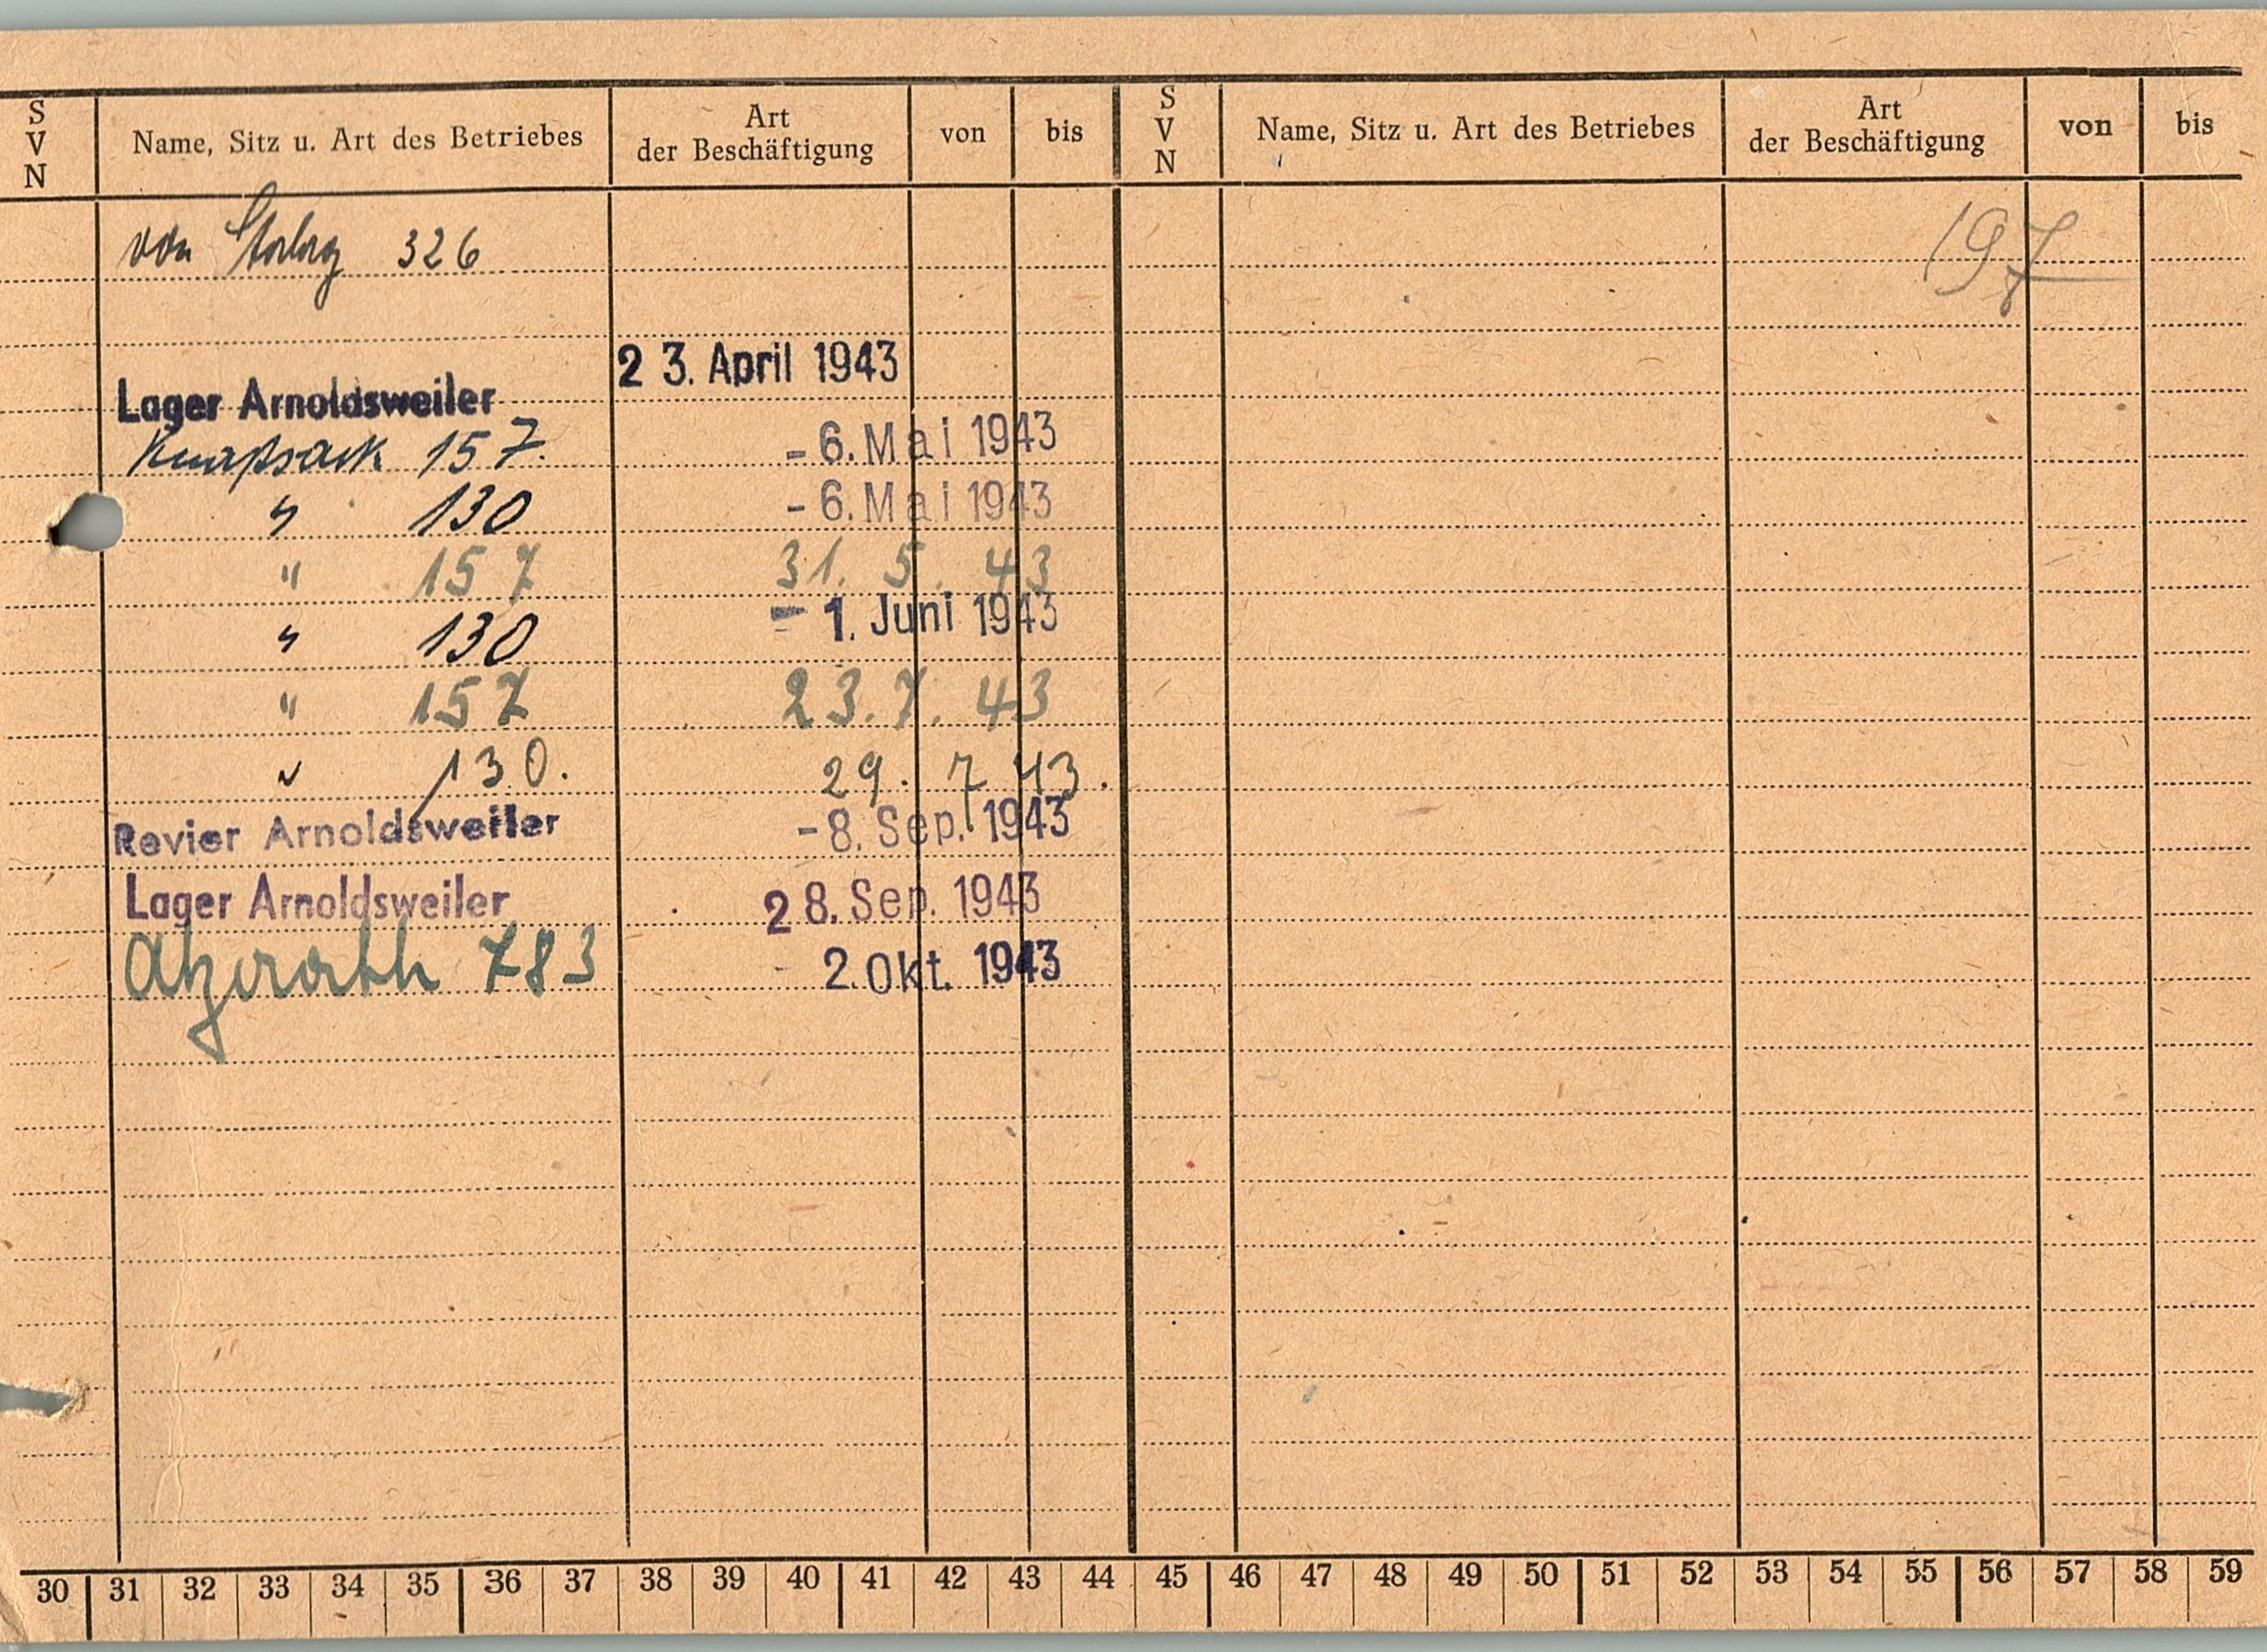 S V N Name, Sitz u. Art des Betriebes Art der Beschäftigung von bis S V N Name, Sitz u. Art des Betriebes Art der Beschäftigung von bis
von Stalag 326
197
23. April 1943
Lager Arnoldsweiler
Knapsack 157. - 6. Mai 1943
" 130 - 6. Mai 1943
" 157 31. 5. 43
" 130 - 1. Juni 1943
" 157 23. 7. 43
" 130. 29. 7 43.
Revier Arnoldsweiler - 8. Sep. 1943
Lager Arnoldsweiler 28. Sep. 1943
Atzerath 783 - 2. Okt. 1943
30 31 32 33 34 35 36 37 38 39 40 41 42 43 44 45 46 47 48 49 50 51 52 53 54 55 56 57 58 59